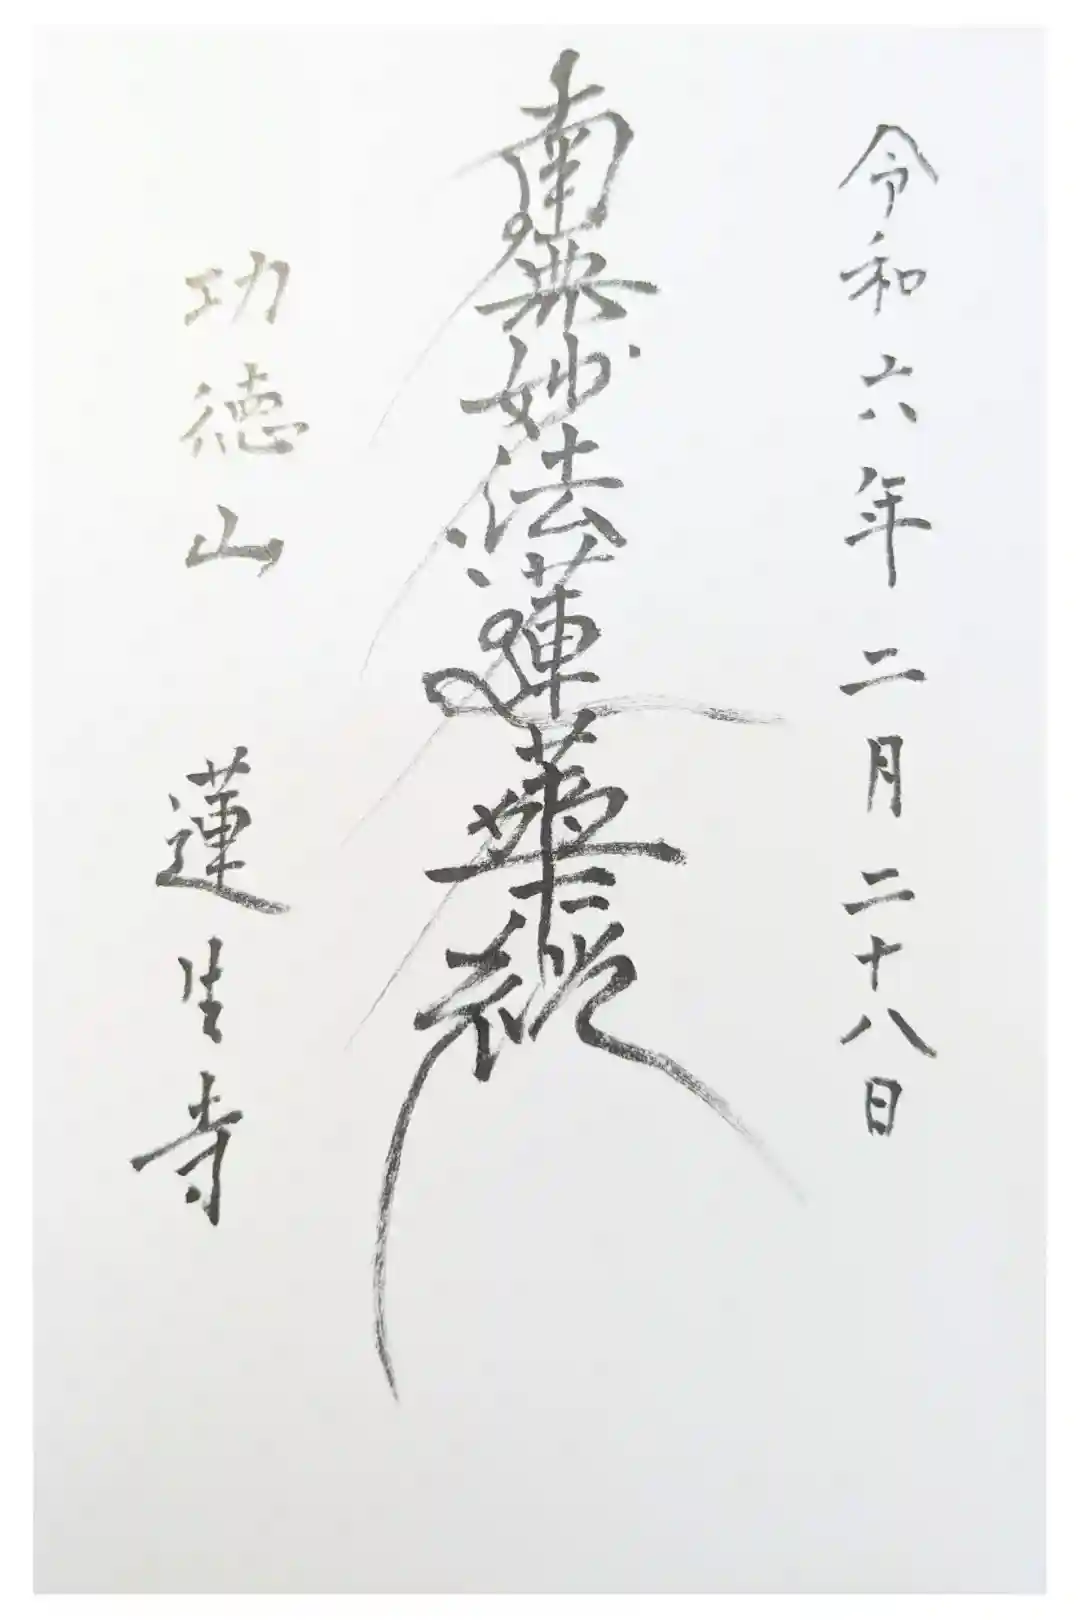 令和六年二月二十八日
南無妙法蓮華経
功徳山 蓮生寺